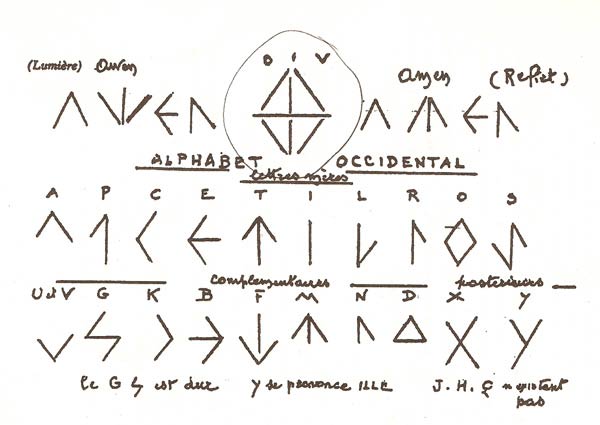 O I V
(Lumière) Awen Amen (Reflet)
ALPHABET OCCIDENTAL
Lettres mères
A P C E T I L R O S
complémentaires postérieurs
U et V G K B F M N D X Y
le G ϟ est dur Y se prononce ILLE J. H. Ç n'existent
pas